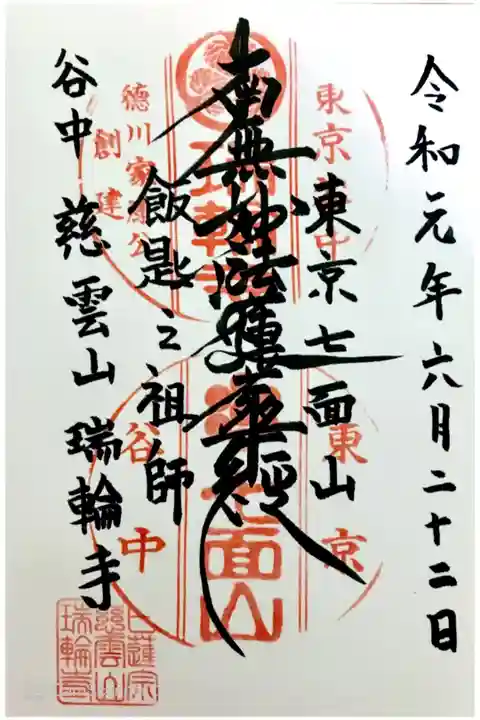 令和元年六月二十二日
東京七面山
南無妙法蓮華経
飯匙之祖師
谷中 慈雲山 瑞輪寺
東京谷中
瑞輪寺
德川家康公
創建
東京
七面山
谷中
日蓮宗
慈雲山
瑞輪寺